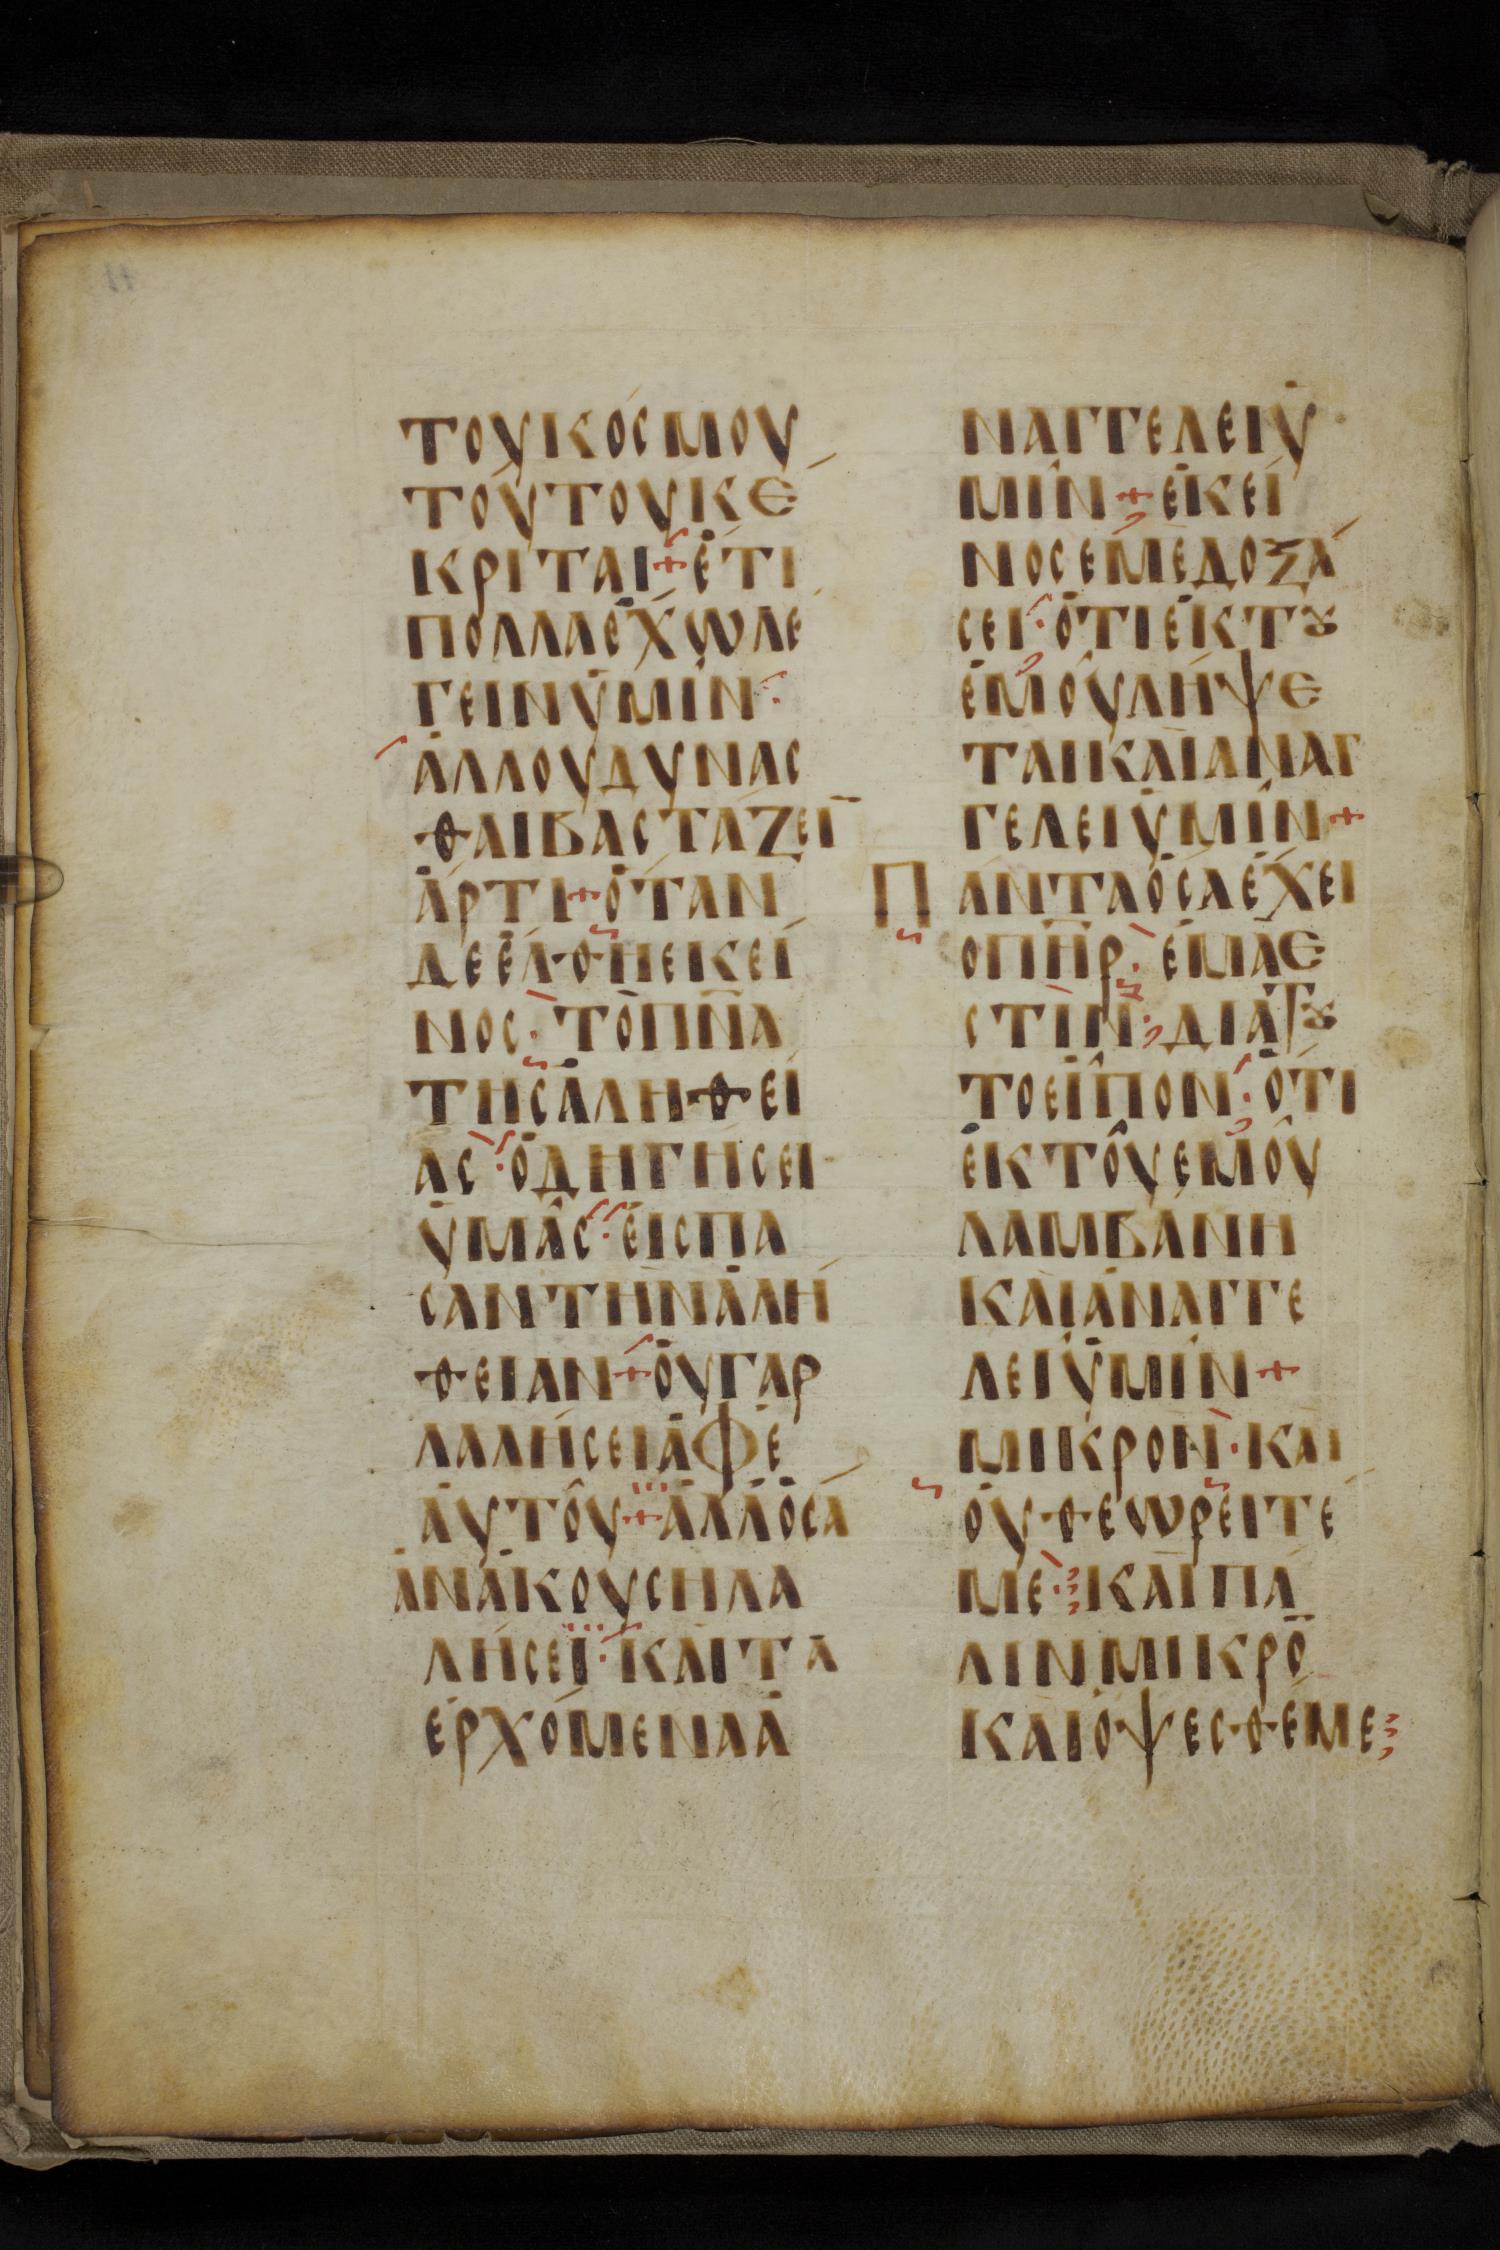 ΤΟΥΚΌCΜΟΥ
ΤΟΎΤΟΥΚΕ
ΚΡΙΤΑΙ+ἘΤΙ
ΠΟΛΛΑἘΧΩΛΕ
ΓΕΙΝὙΜΙΝ·
ἈΛΛΟΥΔΥΝΑC
ΘΑΙΒΑCΤΑΖΕΙ̅
ἈΡΤΙ+ὉΤΑΝ
ΔΕἘΛΘΗΕΚΕΙ
ΝΟC·ΤΟΠ̅Ν̅Α̅
ΤΗCἈΛΗΘΕΙ
ΑC·ὉΔΗΓΗCΕΙ
ὙΜΑC·ἘΙCΠΑ
CΑΝΤΗΝἈΛΗ
ΘΕΙΑΝ+ὈΥΓΑΡ
ΛΑΛΗCΕΙἈΦΕ
ἈΥΤΟΥ+ἈΛΛὉCΑ
ἈΝἈΚΟΥCΗΛΑ
ΛΗCΕΙ·ΚΑΙΤΑ
ἘΡΧΟΜΕΝΑἈ
ΝΑΓΓΕΛΕΙΫ
ΜΙΝ+ἘΚΕΙ
ΝΟCΕΜΕΔΟΞΑ
CΕΙ·ὉΤΙἘΚΤȢ
ἘΜΟΥΛΗΨΕ
ΤΑΙΚΑΙΑΝΑΓ
ΓΕΛΕΙὙΜΙΝ+
ΠΑΝΤΑὉCΑἘΧΕΙ
ΟΠ̅Η̅Ρ̅·ἘΜΑΕ
CΤΙΝ·ΔΙΑΤȢ
ΤΟΕΙΠΟΝ·ὉΤΙ
ἘΚΤΟΥΕΜΟΥ
ΛΑΜΒΑΝΗ
ΚΑΙἈΝΑΓΓΕ
ΛΕΙὙΜΙΝ+
ΜΙΚΡΟΝ·ΚΑΙ
ὈΥΘΕΩΡΕΙΤΕ
ΜΕ·ΚΑΙΠΑ
ΛΙΝΜΙΚΡΟ̅
ΚΑΙΟΨΕCΘΕΜΕ